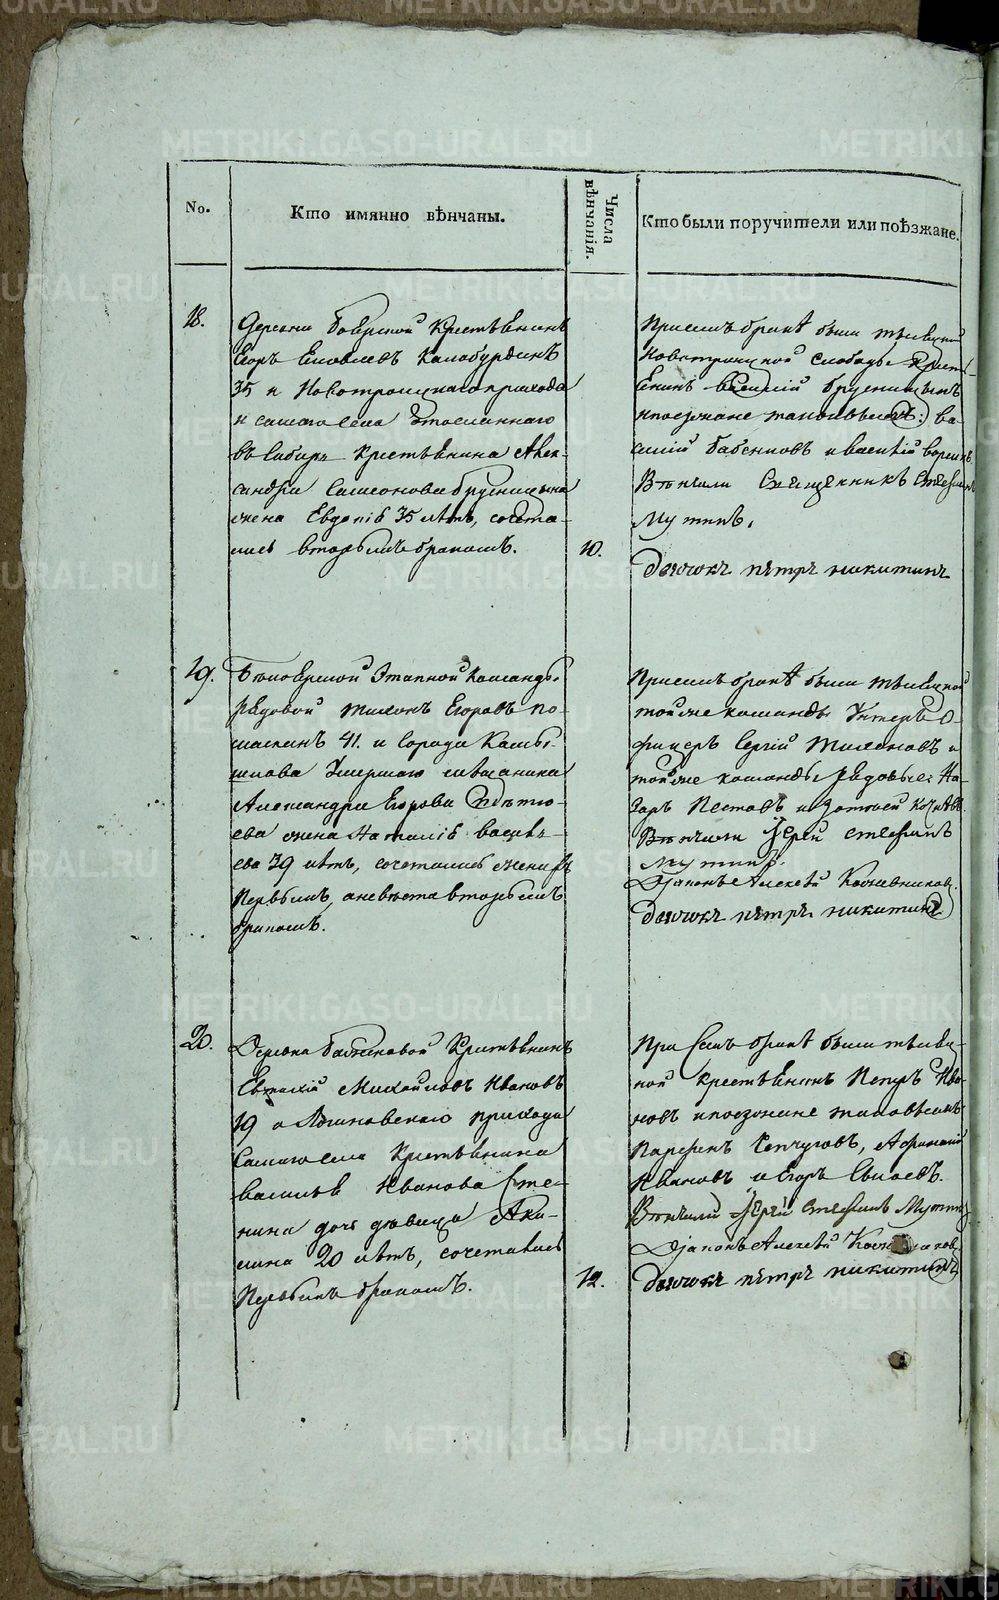 No.
Кто имянно вѣнчаны.
Числа вѣнчанія.
Кто были поручители или поѣзжане.
18.
Деревни Боярской Крестьянинъ
Егоръ Яковлевъ Калабурдинъ
35 и Новотроицкаго прихода
и самаго села отосланнаго
въ Сибирь Крестьянина Алек-
сандра Самсонова Брусницына
жена Евдокія 35 лѣтъ, сочета-
лись вторымъ бракомъ.
10.
При семъ бракѣ были тысяцкій
Новотроицкой слободы Кресть-
янинъ Василій Брусницынъ
и поезжане таковыежъ: Ва-
силій Бабенковъ и Василій
Вѣнчали Священникъ Стефанъ
Мутинъ.
Дьячокъ Пѣтръ Никитинъ
19.
Белоярской Этапной Команды
Рядовой Тихонъ Егоровъ По-
маскинъ 41. и Города Камы-
шлова Умершаго мѣщанина
Александра Егорова
жена Наталія Василь-
ева 39 лѣтъ, сочетались женихъ
Первымъ, а невѣста вторымъ
бракомъ.
При семъ бракѣ были тысяцкой
той же команды Унтеръ О-
фицеръ Сергій Тихоновъ и
той же команды Рядовые: На-
заръ Пестовъ и
Вѣнчали Іерей Стефанъ
Мутинъ.
Діаконъ Алексѣй Кожевниковъ.
Дьячокъ Пѣтръ Никитинъ
20.
Деревни Бабиновой Крестьянинъ
Михайловъ Ивановъ
19 и Логиновскаго прихода
Самаго села Крестьянина
Василья Иванова Сте-
нина дочь дѣвица Аки-
лина 20 лѣтъ, сочетались
Первымъ бракомъ.
12.
При семъ бракѣ были тысяц-
кой крестьянинъ Петръ Ива-
новъ и поезжане таковыежъ
Парфенъ Кепчуговъ, Афонасій
Ивановъ и Егоръ
Вѣнчали Іерей Стефанъ Мутинъ
Діаконъ Алексѣй
Дьячокъ Пѣтръ Никитинъ
METRIKI.GASO-URAL.RU